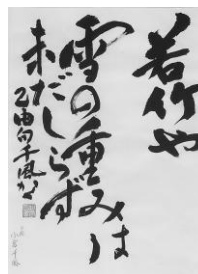 若竹や
雪の重みは
未だしらず
乙由句千風かく